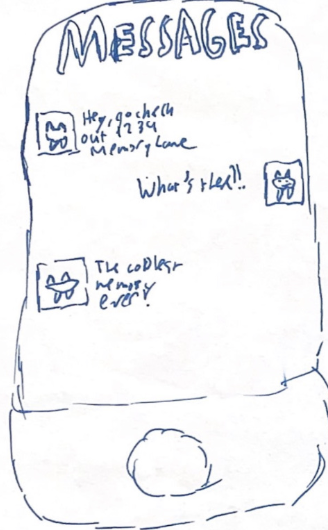 MESSAGES
Hey, go check
out 1234
Memory Lane
What's there?!
The coolest
memory
ever!